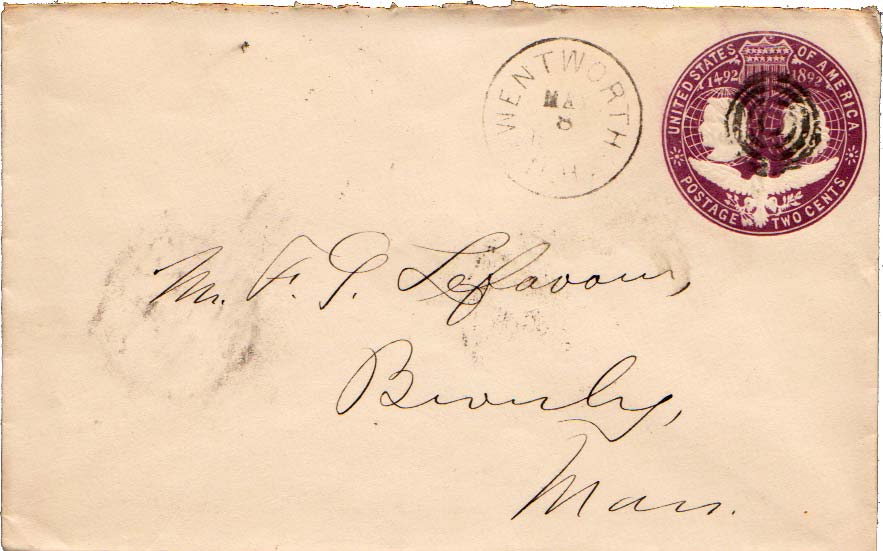 WENTWORTH
MA
8
N.H.
UNITED STATES OF AMERICA
1492 1892
POSTAGE TWO CENTS
Mr. F. P. Lefavour,
Beverly,
Mass.